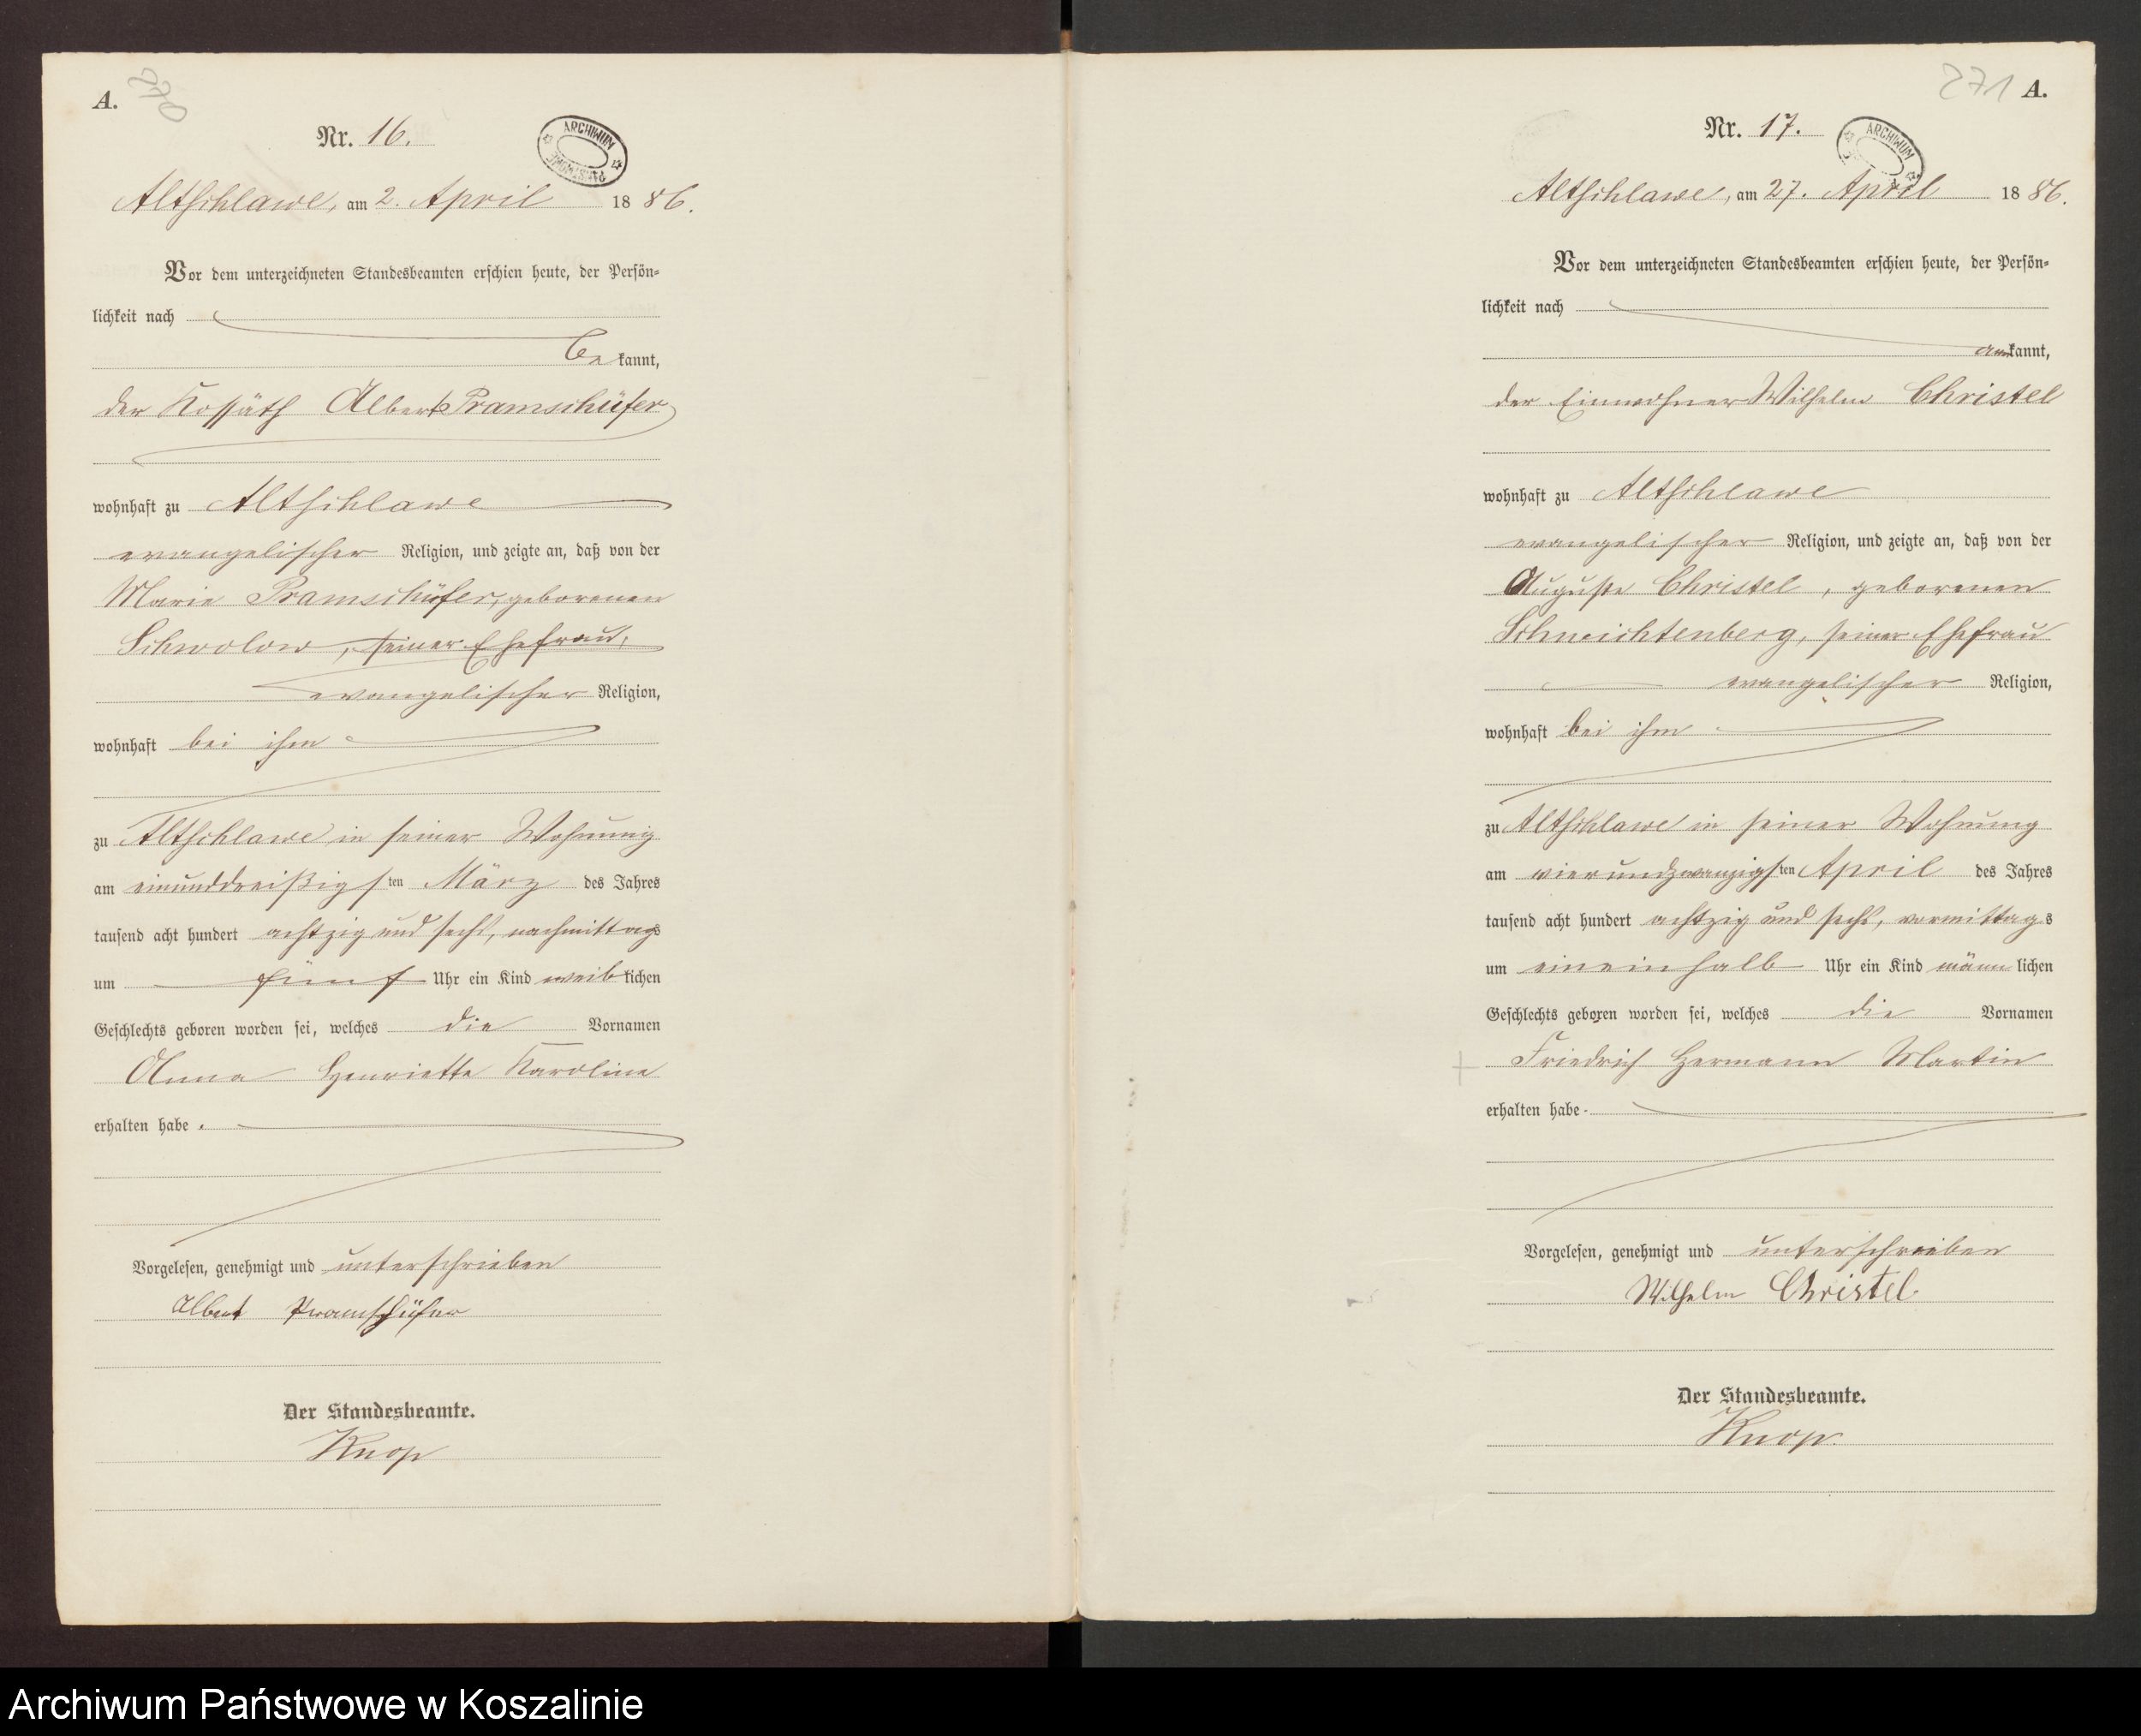 A.
270
Nr. 16.
ARCHIWUM PAŃSTWOWE
Altschlawe, am 2. April 1886.
Vor dem unterzeichneten Standesbeamten erschien heute, der Persön-
lichkeit nach
bekannt,
der Kossäth Albert Pramschüfer
wohnhaft zu Altschlawe
evangelischer Religion, und zeigte an, daß von der
Marie Pramschüfer, geborenen
Schwolow, seiner Ehefrau,
evangelischer Religion,
wohnhaft bei ihm
zu Altschlawe in seiner Wohnung
am einunddreißigsten März des Jahres
tausend acht hundert achtzig und sechs, nachmittags
um fünf Uhr ein Kind weiblichen
Geschlechts geboren worden sei, welches die Vornamen
Anna Henriette Karoline
erhalten habe.
Vorgelesen, genehmigt und unterschrieben
Albert Pramschüfer
Der Standesbeamte.
Knop
271 A.
Nr. 17.
ARCHIWUM
Altschlawe, am 27. April 1886.
Vor dem unterzeichneten Standesbeamten erschien heute, der Persön-
lichkeit nach
kannt,
der Einwohner Wilhelm Christel
wohnhaft zu Altschlawe
evangelischer Religion, und zeigte an, daß von der
Auguste Christel, geborenen
Schwichtenberg, seiner Ehefrau
evangelischer Religion,
wohnhaft bei ihm
zu Altschlawe in seiner Wohnung
am vierundzwanzigsten April des Jahres
tausend acht hundert achtzig und sechs, vormittags
um eineinhalb Uhr ein Kind männlichen
Geschlechts geboren worden sei, welches die Vornamen
Friedrich Hermann Martin
erhalten habe.
Vorgelesen, genehmigt und unterschrieben
Wilhelm Christel.
Der Standesbeamte.
Knop.
Archiwum Państwowe w Koszalinie